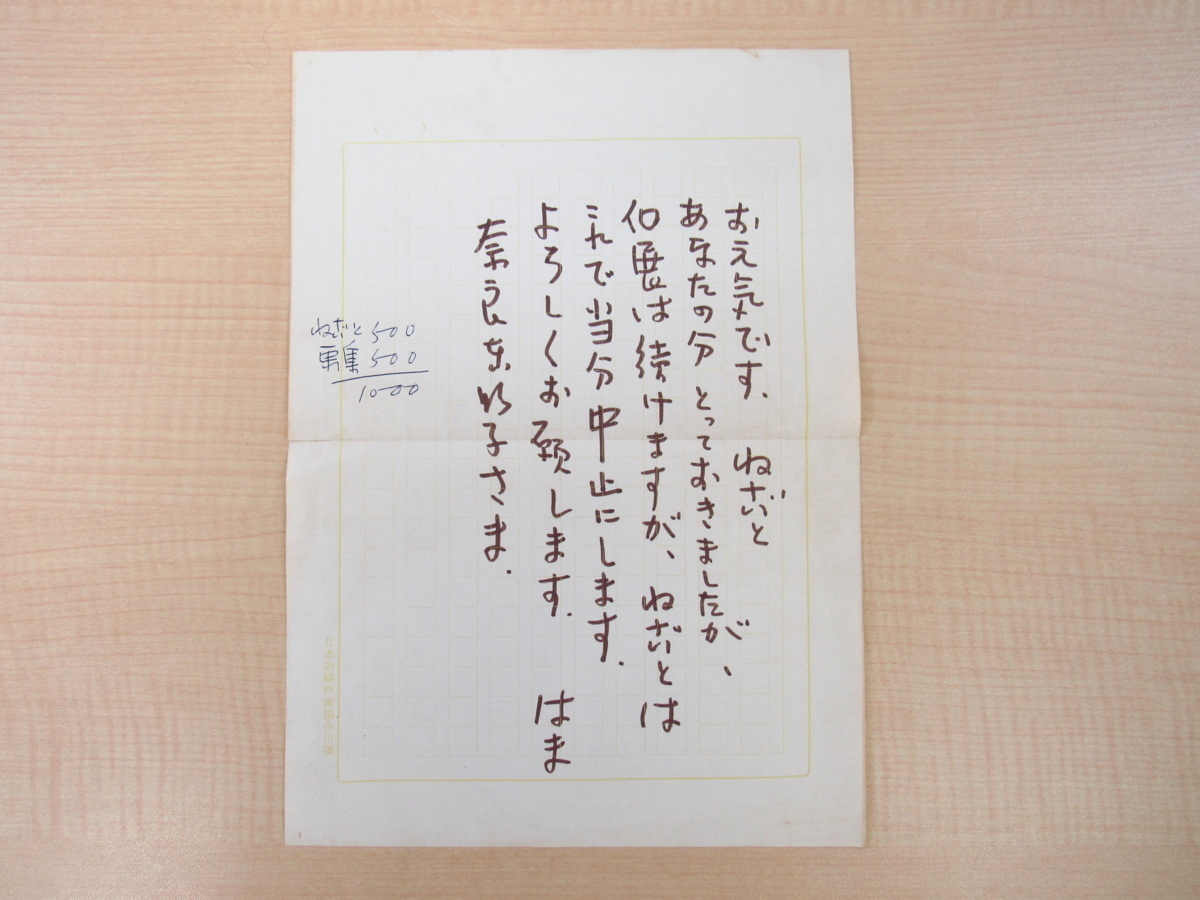 お元気です. ねざいと
あなたの分とっておきましたが、
個展は続けますが、ねざいとは
これで当分中止にします.
よろしくお願します. はま
奈良子さま.
ねざいと 500
500
1000